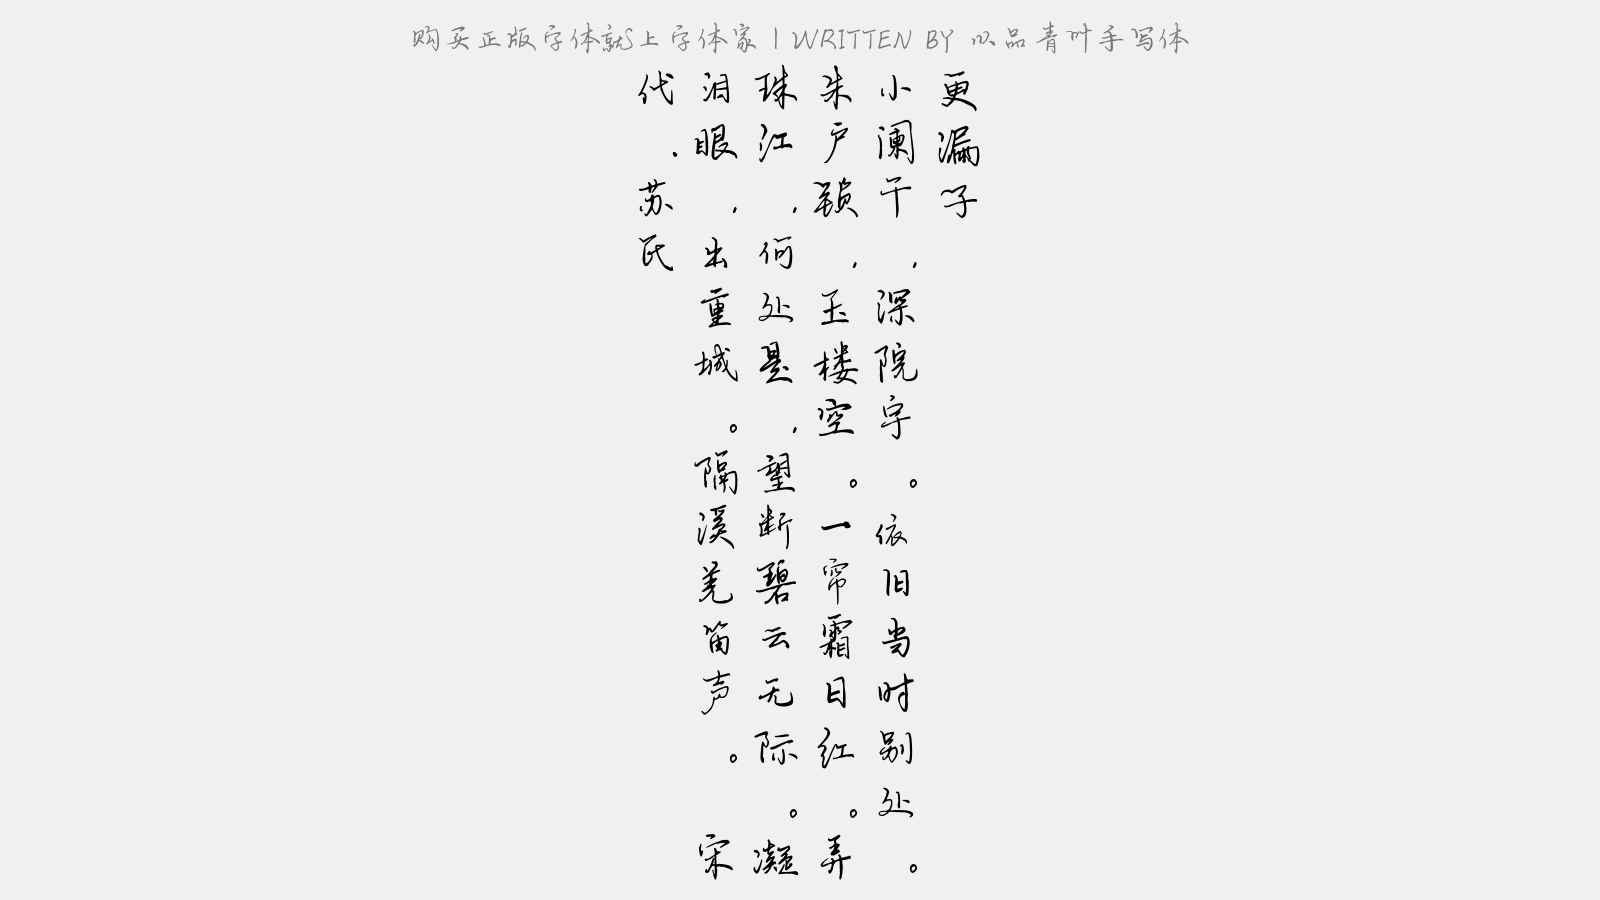 购买正版字体就上字体家 | WRITTEN BY 以品青叶手写体
更漏子
小阑干，深院宇。依旧当时别处。
朱户锁，玉楼空。一帘霜日红。弄
珠江，何处是，望断碧云无际。凝
泪眼，出重城。隔溪羌笛声。宋
代.苏氏